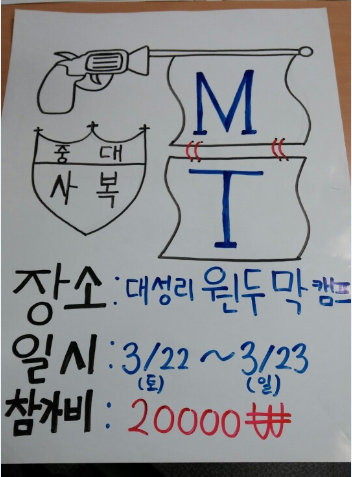 M
T
중 대
사 복
장소 : 대성리 원두막 캠프
일시 : 3/22 ~ 3/23
(토) (일)
참가비 : 20000₩